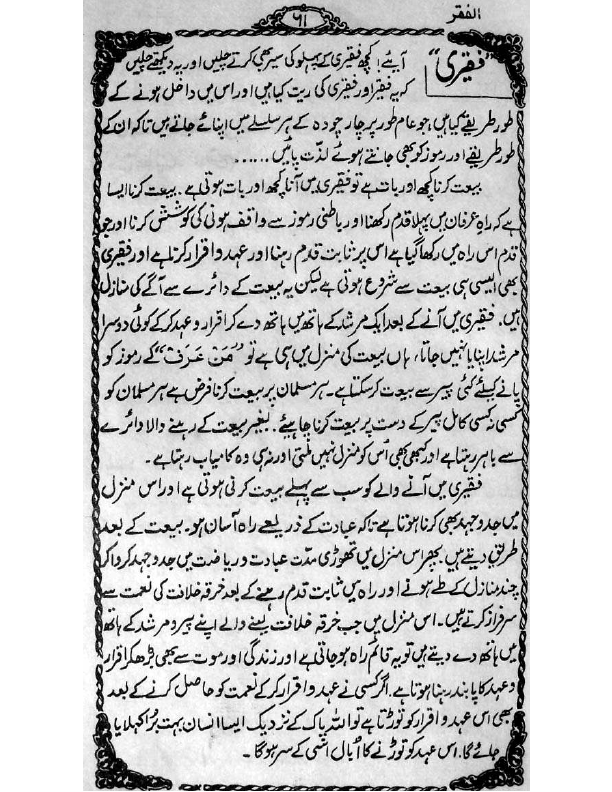 الفقر
۶۱
”فقیری“
آیئے! کچھ فقیری کے پہلو کی سیر بھی کرتے چلیں اور یہ دیکھتے چلیں
کہ یہ فقیر اور فقیری کی ریت کیا ہیں اور اس میں داخل ہونے کے
طور طریقے کیا ہیں، جو عام طور پر چار چودہ کے ہر سلسلے میں اپنائے جاتے ہیں تاکہ ان کے
طور طریقے اور رموز کو بھی جانتے ہوئے لذّت پائیں ......
بیعت کرنا کچھ اور بات ہے تو فقیری میں آنا کچھ اور بات ہوتی ہے۔ بیعت کرنا ایسا
ہے کہ راہِ عرفان میں پہلا قدم رکھنا اور باطنی رموز سے واقف ہونی کی کوشش کرنا اور جو
قدم اس راہ میں رکھا گیا ہے اس پر ثابت قدم رہنا اور عہد و اقرار کرتا ہے اور فقیری
بھی ایسی ہی بیعت سے شروع ہوتی ہے لیکن یہ بیعت کے دائرے سے آگے کی منازل
ہیں۔ فقیری میں آنے کے بعد ایک مرشد کے ہاتھ میں ہاتھ دے کر اقرار و عہد کر کے کوئی دوسرا
مرشد اپنایا نہیں جاتا، ہاں بیعت کی منزل میں ہی ہے تو ”مَنْ عَرَفَ“ کے رموز کو
پانے کیلئے کئی پیر سے بیعت کر سکتا ہے۔ ہر مسلمان پر بیعت کرنا فرض ہے ہر مسلمان کو
کسی نہ کسی کامل پیر کے دست پر بیعت کرنا چاہیئے۔ بغیر بیعت کے رہنے والا دائرے
سے باہر رہتا ہے اور کبھی بھی اُس کو منزل نہیں ملتی اور نہ ہی وہ کامیاب رہتا ہے۔
فقیری میں آنے والے کو سب سے پہلے بیعت کرنی ہوتی ہے اور اس منزل
میں جدوجہد بھی کرنا ہوتا ہے تاکہ عبادت کے ذریعے راہ آسان ہو۔ بیعت کے بعد
طریق دیتے ہیں۔ پھر اس منزل میں تھوڑی مدّت عبادت و ریاضت میں جدوجہد کروا کر
چند منازل کے طے ہونے اور راہ میں ثابت قدم رہنے کے بعد خرقہ خلافت کی نعمت سے
سرفراز کرتے ہیں۔ اس منزل میں جب خرقہ خلافت لینے والے اپنے پیر و مرشد کے ہاتھ
میں ہاتھ دے دیتے ہیں تو یہ قائم راہ ہو جاتی ہے اور زندگی اور موت سے بھی بڑھ کر اقرار
و عہد کا پابند رہنا ہوتا ہے۔ اگر کسی نے عہد و اقرار کر کے نعمت کو حاصل کرنے کے بعد
بھی اس عہد و اقرار کو توڑتا ہے تو اللہ پاک کے نزدیک ایسا انسان بہت بُرا کہلایا
جائے گا۔ اس عہد کو توڑنے کا اُبال اسی کے سر ہو گا۔